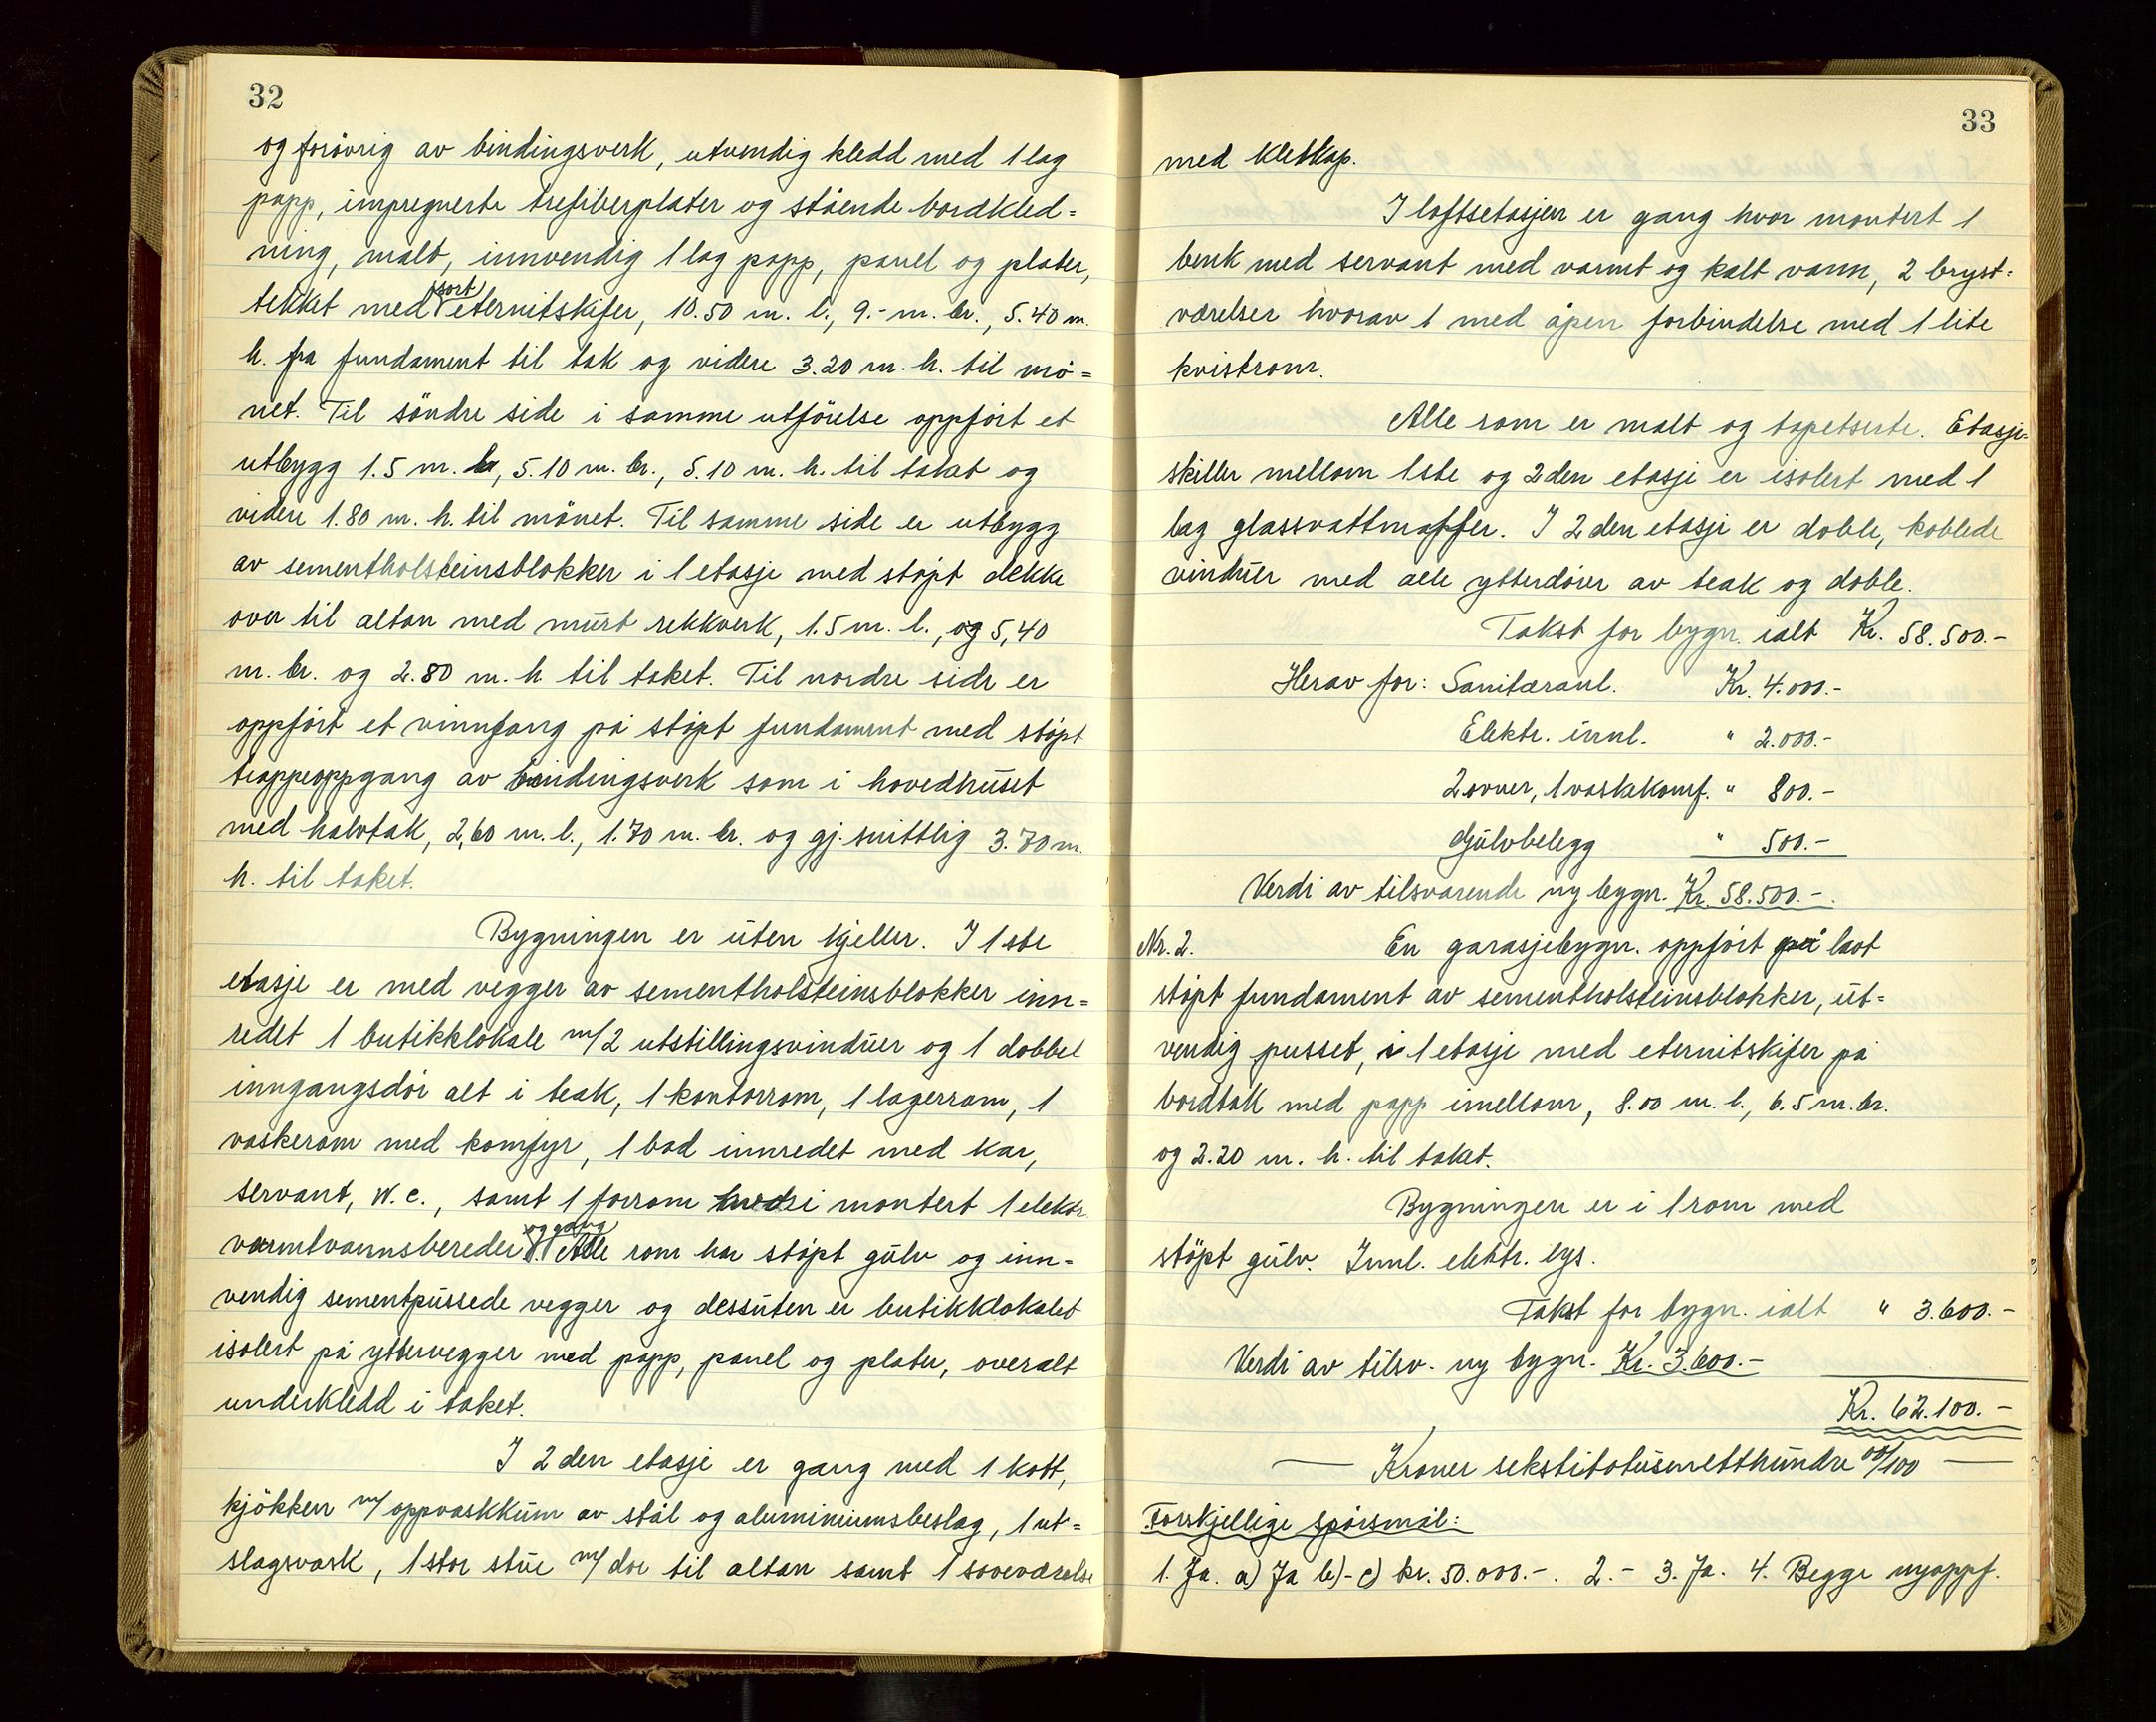 32
og forøvrig av bindingsverk, utvendig kledd med 1 lag
papp, impregnerte trefiberplater og stående bordkled=
ning, malt, innvendig 1 lag papp, panel og plater,
sort
tekket med eternitskifer, 10.50 m. l., 9.- m. br., 5.40 m.
h. fra fundament til tak og videre 3.20 m. h. til mø=
net. Til søndre side i samme utførelse oppført et
utbygg 1.5 m. l., 5.10 m. br., 5.10 m. h. til taket og
videre 1.80 m. h. til mønet. Til samme side er utbygg
av sementholsteinsblokker i 1 etasje med støpt dekke
over til altan med murt rekkverk, 1.5 m. l., og 5,40
m. br. og 2.80 m. h. til taket. Til nordre side er
oppført et vinnfang på støpt fundament med støpt
trappeoppgang av bindingsverk som i hovedhuset
med halvtak, 2,60 m. l., 1.70 m. br. og gj. snittlig 3.70 m.
h. til taket.
Bygningen er uten kjeller. I 1 ste
etasje er med vegger av sementholsteinsblokker inn=
redet 1 butikklokale m/2 utstillingsvinduer og 1 dobbel
inngangsdør alt i teak, 1 kontorrom, 1 lagerrom, 1
vaskerom med komfyr, 1 bad innredet med kar,
servant, w.c., samt 1 forrom hvori montert 1 elektr.
og gang
varmtvannsbereder. Alle rom har støpt gulv og inn=
vendig sementpussede vegger og dessuten er butikklokalet
isolert på yttervegger med papp, panel og plater, overalt
underkledd i taket.
I 2 den etasje er gang med 1 kott,
kjøkken m/oppvaskkum av stål og aluminiumsbeslag, 1 ut=
slagsvask, 1 stor stue m/dør til altan samt 1 soveværelse
33
med kleskap.
I loftsetasjen er gang hvor montert 1
benk med servant med varmt og kalt vann, 2 bryst=
værelser hvorav 1 med åpen forbindelse med 1 lite
kvistrom.
Alle rom er malt og tapetserte. Etasje=
skiller mellom 1ste og 2den etasje er isolert med 1
lag glassvattmatter. I 2den etasje er doble, koblede
vinduer med alle ytterdører av teak og doble.
Takst for bygn. ialt Kr. 58.500.-
Herav for: Sanitæranl. Kr. 4.000.-
Elektr. innl. " 2.000.-
2 ovner, 1 vaskekomf. " 800.-
Gulvbelegg " 500.-
Verdi av tilsvarende ny bygn. Kr. 58.500.-
Nr. 2. En garasjebygn. oppført på lavt
støpt fundament av sementholsteinsblokker, ut=
vendig pusset, i 1 etasje med eternitskifer på
bordtak med papp imellom, 8.00 m. l., 6.5 m. br.
og 2.20 m. h. til taket.
Bygningen er i 1 rom med
støpt gulv. Innl. elektr. lys.
Takst for bygn. ialt " 3.600.-
Verdi av tilsv. ny bygn. Kr. 3.600.-
Kr. 62.100.-
Kroner sekstitotusenetthundre 00/100
Forskjellige spørsmål:
1. Ja. a) Ja b)- c) kr. 50.000.-. 2.- 3. Ja. 4. Begge nyoppf.